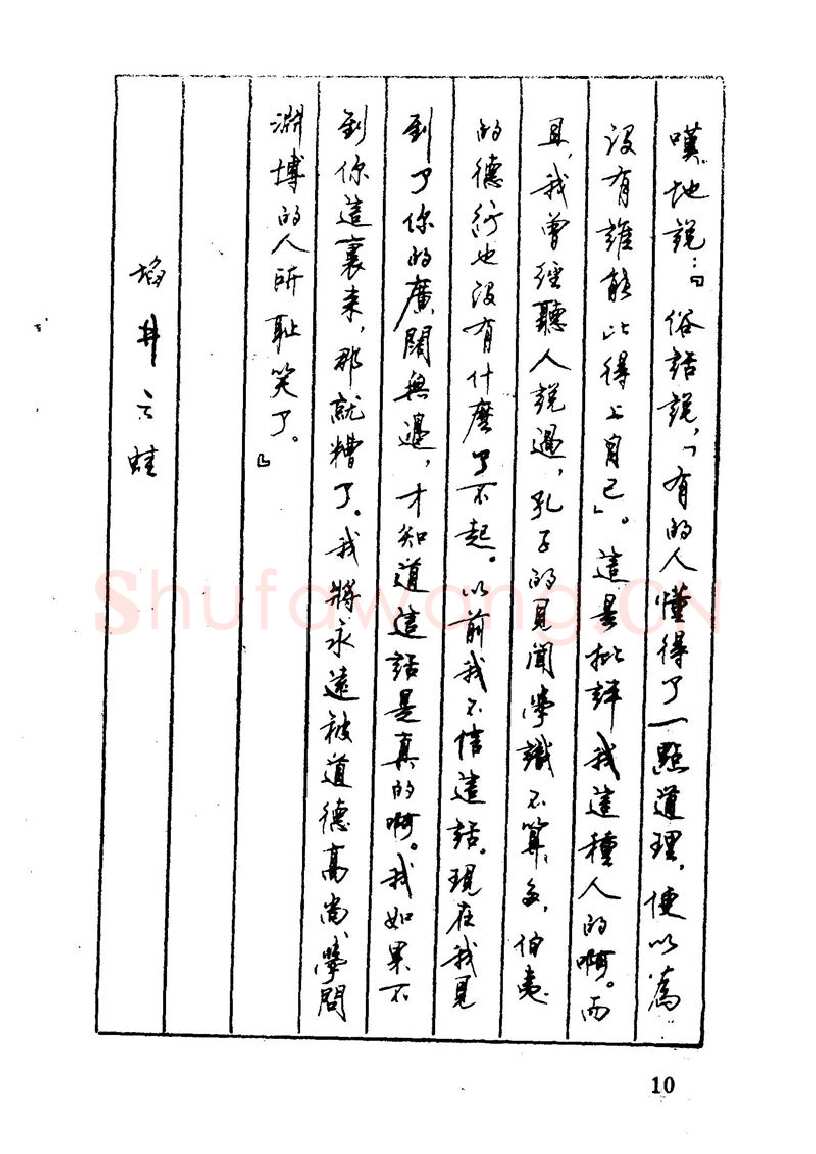 嘆地說：『俗話說，「有的人懂得了一點道理，便以為
沒有誰能比得上自己」。這是批評我這種人的啊。而
且，我曾經聽人說過，孔子的見聞學識不算多，伯夷
的德行也沒有什麼了不起。以前我不信這話。現在我見
到了你的廣闊無邊，才知道這話是真的啊。我如果不
到你這裏來，那就糟了。我將永遠被道德高尚、學問
淵博的人所恥笑了。』
埳井之蛙
10
Shufawang.CN